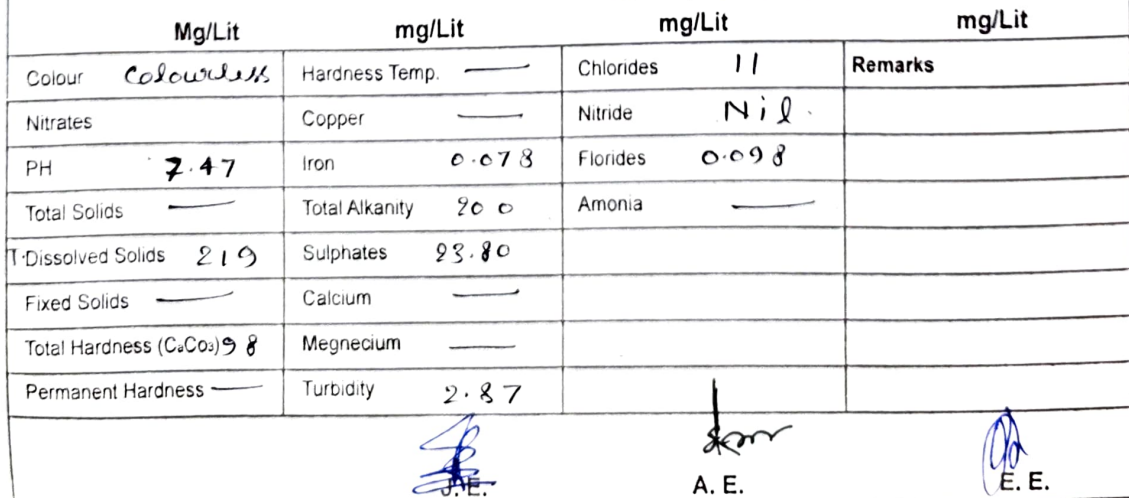 Mg/Lit mg/Lit mg/Lit mg/Lit
Colour Colourless Hardness Temp. — Chlorides 11 Remarks
Nitrates Copper — Nitride Nil.
PH 7.47 Iron 0.078 Florides 0.098
Total Solids — Total Alkanity 200 Amonia —
T.Dissolved Solids 219 Sulphates 23.80
Fixed Solids — Calcium —
Total Hardness (CaCo3) 98 Megnecium —
Permanent Hardness — Turbidity 2.87
J. E. A. E. E. E.